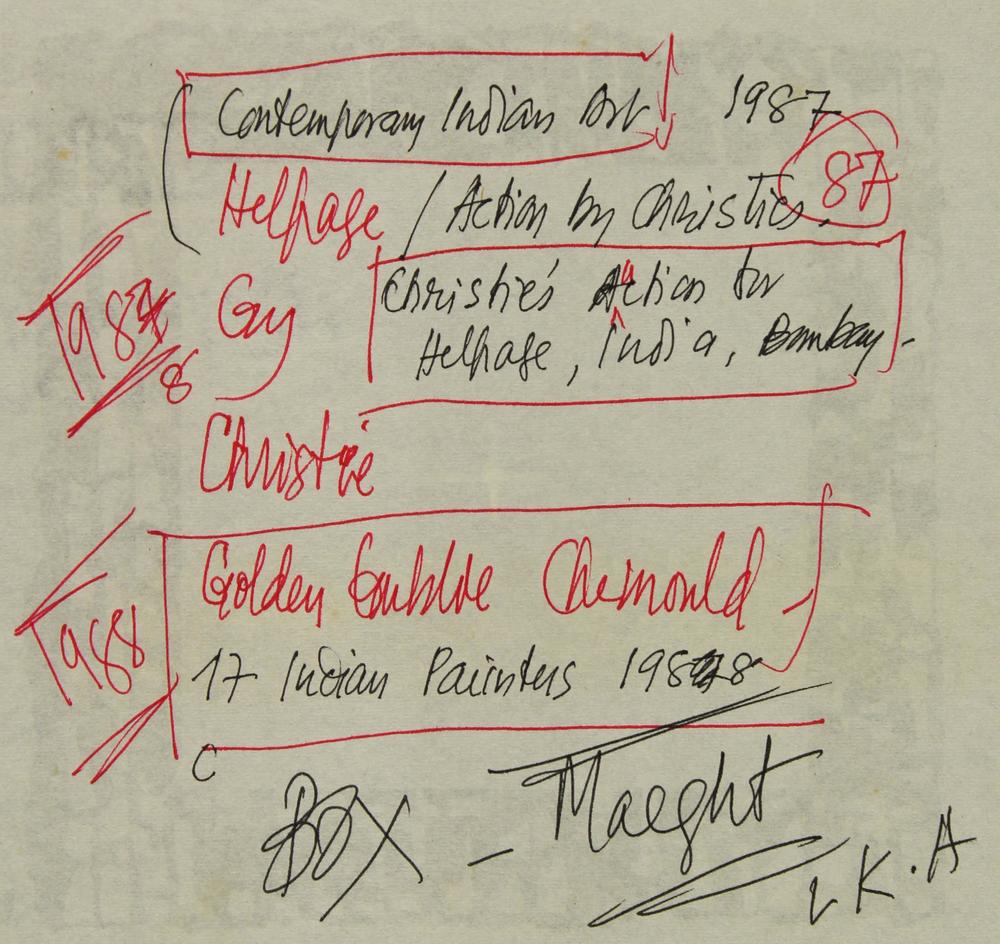 Contemporary Indian Art 1987
87
Helpage / Action by Christies.
1987
8
Guy
Christie's Auction for
Helpage, India, Bombay.
Christie
Golden Chemould
1988
17 Indian Painters 1988
C
BOX - Maeght
K.A